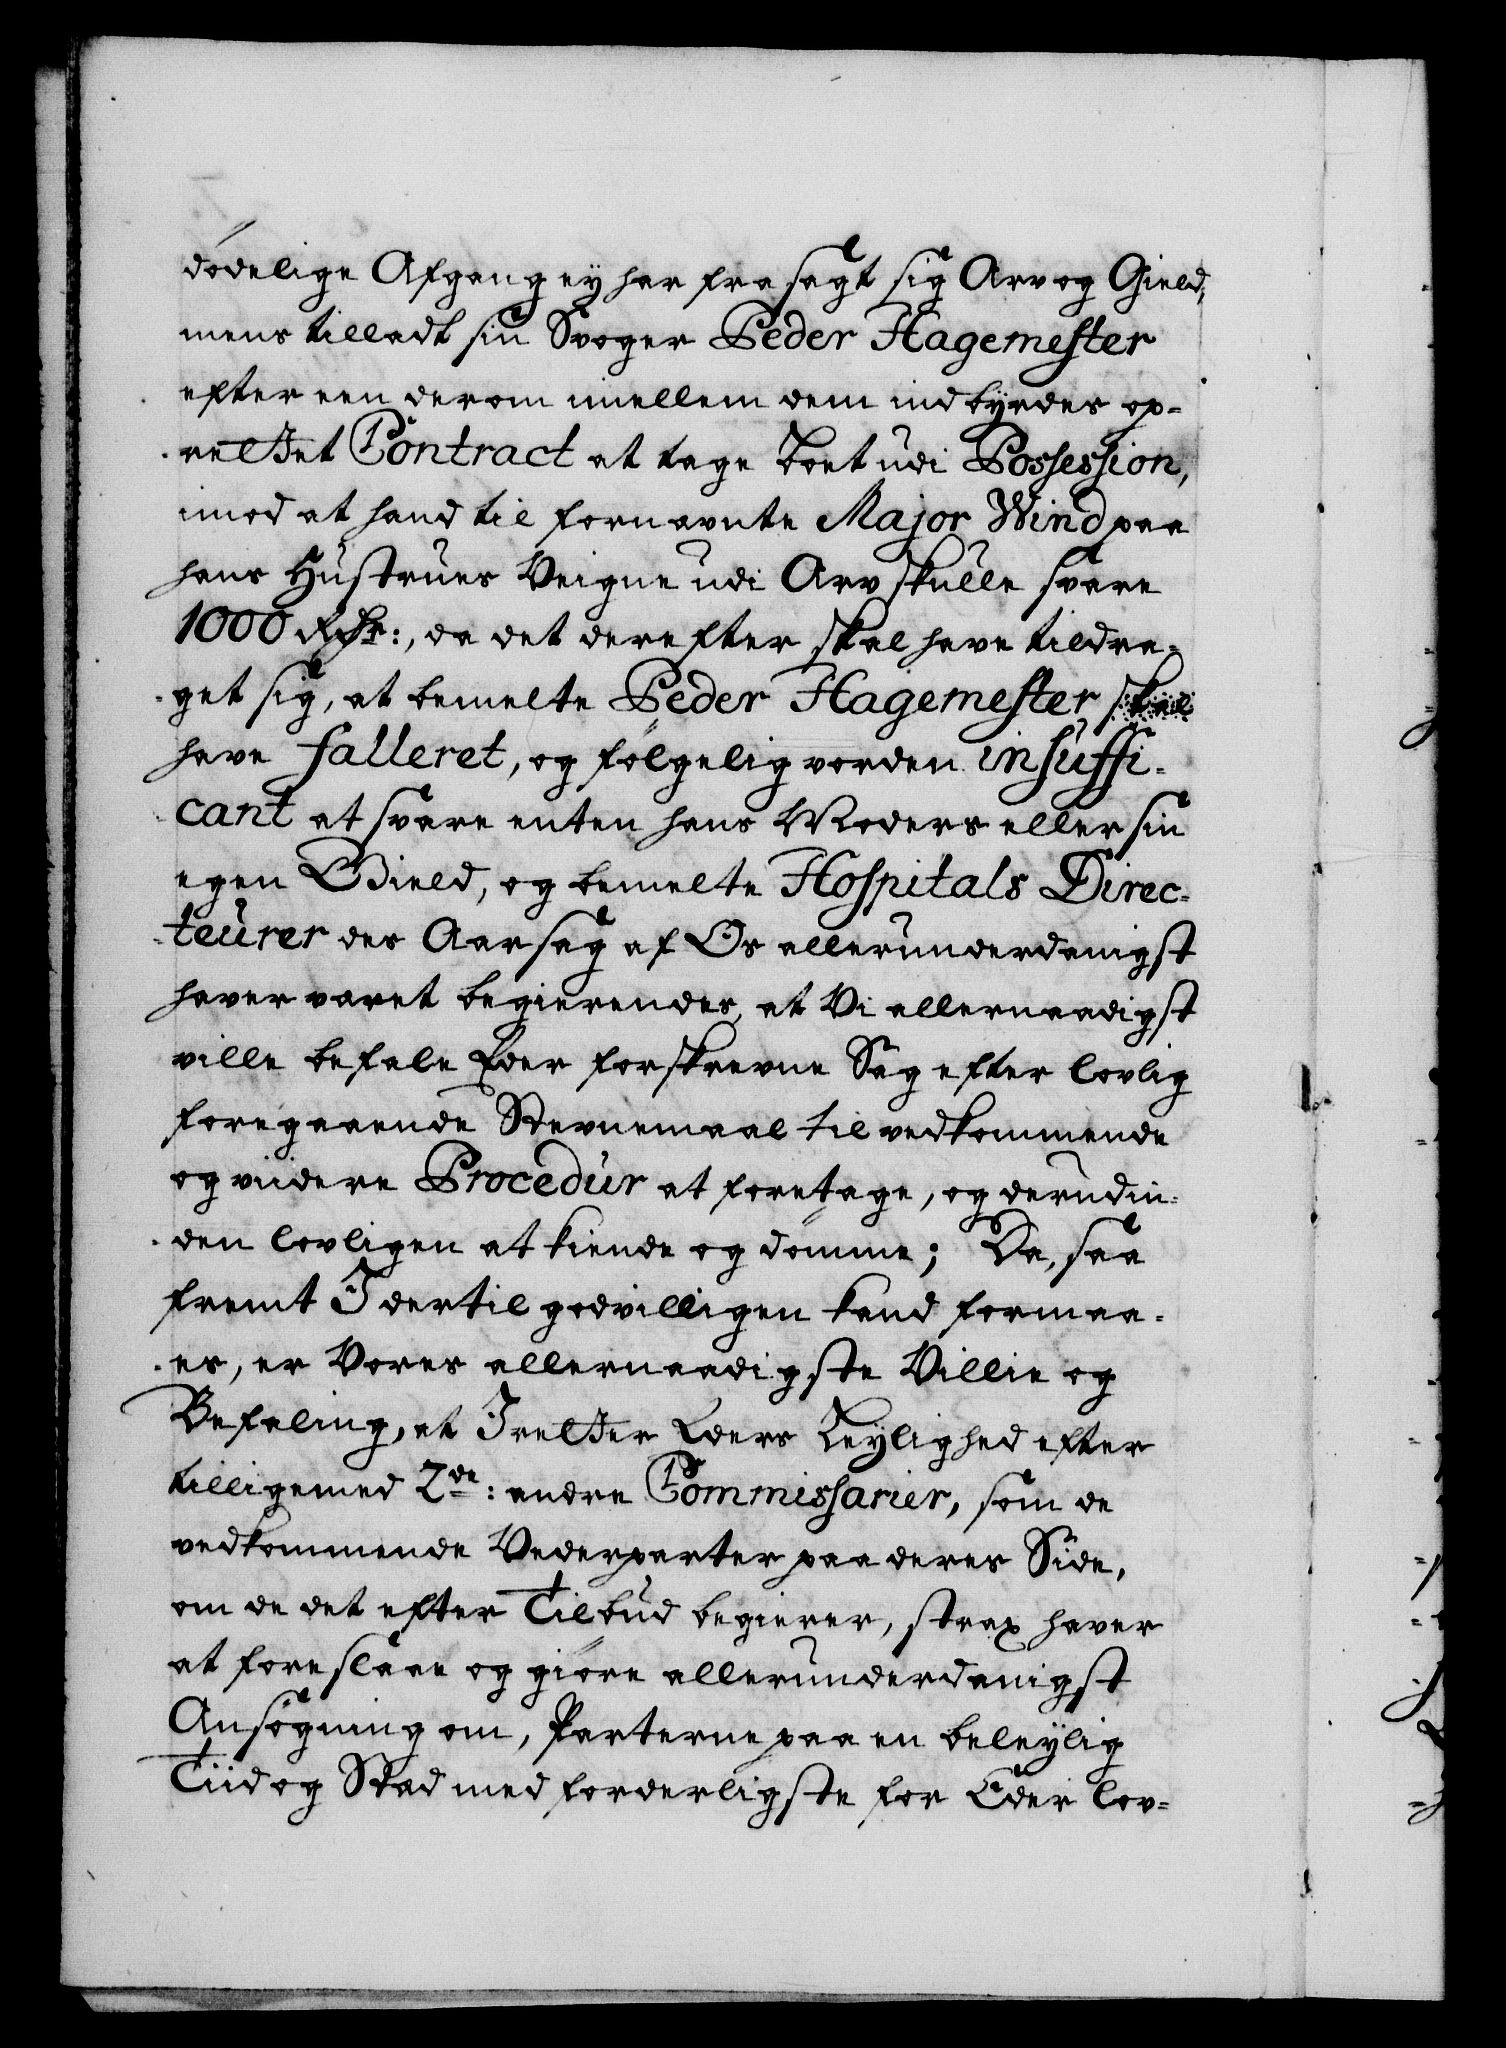 dødelige Afgang ey har fra sagt sig Arv og Gield,
mens tilladt sin Svoger Peder Hagemester
efter een derom imellem dem indbyrdes op-
rettet Contract at tage Boet udi Possession,
imod at hand til fornævnte Major Wind paa
hans Hustrues Veigne udi Arv skulle svare
1000 Rdlr:, da det derefter skal have tildra-
get sig, at bemelte Peder Hagemester
have falleret, og følgelig vorden insuffi-
cant at svare enten hans Moders eller sin
egen Gield, og bemelte Hospitals Direc-
teurer des Aarsag af Os allerunderdanigst
haver varet begierendes, at Vi allernaadigst
ville befale Eder forskrevne Sag efter lovlig
foregaaende Stevnemaal til vedkommende
og viidere Procedur at foretage, og derudin-
den lovligen at kiende og dømme; Da, saa
fremt I dertil godvilligen kand formaa-
es, er Vores allernaadigste Villie og
Befaling, at I retter Eders Leylighed efter
tilligemed 2de: andre Commissarier, som de
vedkommende Vederparter paa deres Side,
om de det efter Tilbud begierer, strax haver
at foreslaae og giøre allerunderdanigst
Ansøgning om, Parterne paa en beleylig
Tiid og Stad med forderligste for Eder lov-